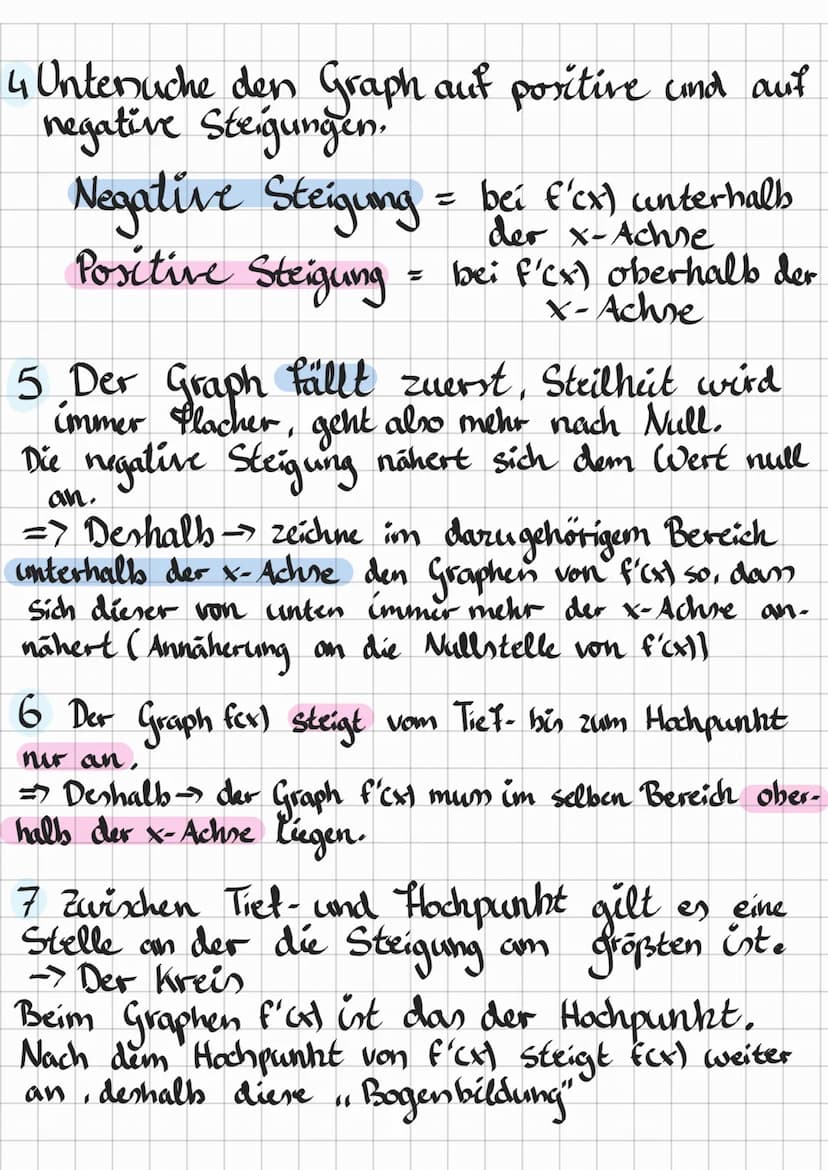 4 Untersuche den Graph auf positive und auf
negative Steigungen.
Negative Steigung = bei f'(x) unterhalb
der x-Achse
Positive Steigung = bei f'(x) oberhalb der
x-Achse
5 Der Graph fällt zuerst, Steilheit wird
immer flacher, geht also mehr nach Null.
Die negative Steigung nähert sich dem Wert null
an.
=> Deshalb → zeichne im dazugehörigem Bereich
unterhalb der x-Achse den Graphen von f'(x) so, dass
sich dieser von unten immer mehr der x-Achse an-
nähert (Annäherung an die Nullstelle von f'(x))
6 Der Graph f(x) steigt vom Tief- bis zum Hochpunkt
nur an.
=> Deshalb → der Graph f'(x) muss im selben Bereich ober-
halb der x-Achse liegen.
7 Zwischen Tief- und Hochpunkt gilt es eine
Stelle an der die Steigung am größten ist.
→ Der Kreis
Beim Graphen f'(x) ist das der Hochpunkt.
Nach dem Hochpunkt von f'(x) steigt f(x) weiter
an, deshalb diese „Bogenbildung"